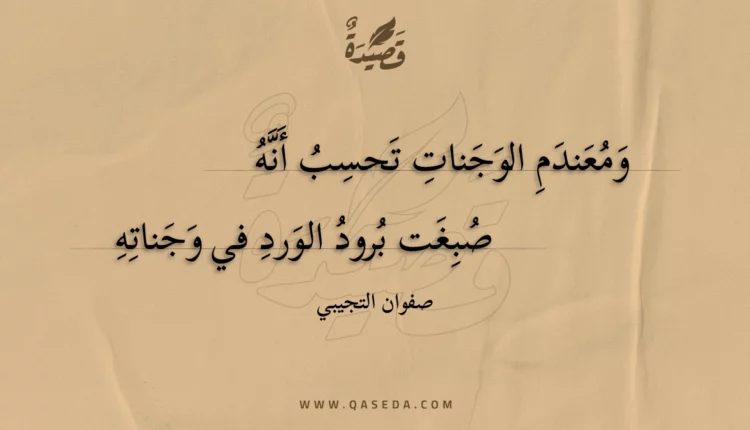 قَصِيدَةٌ
وَمُعَندَمِ الوَجَناتِ تَحسِبُ أَنَّهُ
صُبِغَت بُرودُ الوَردِ في وَجَناتِهِ
صفوان التجيبي
WWW.QASEDA.COM